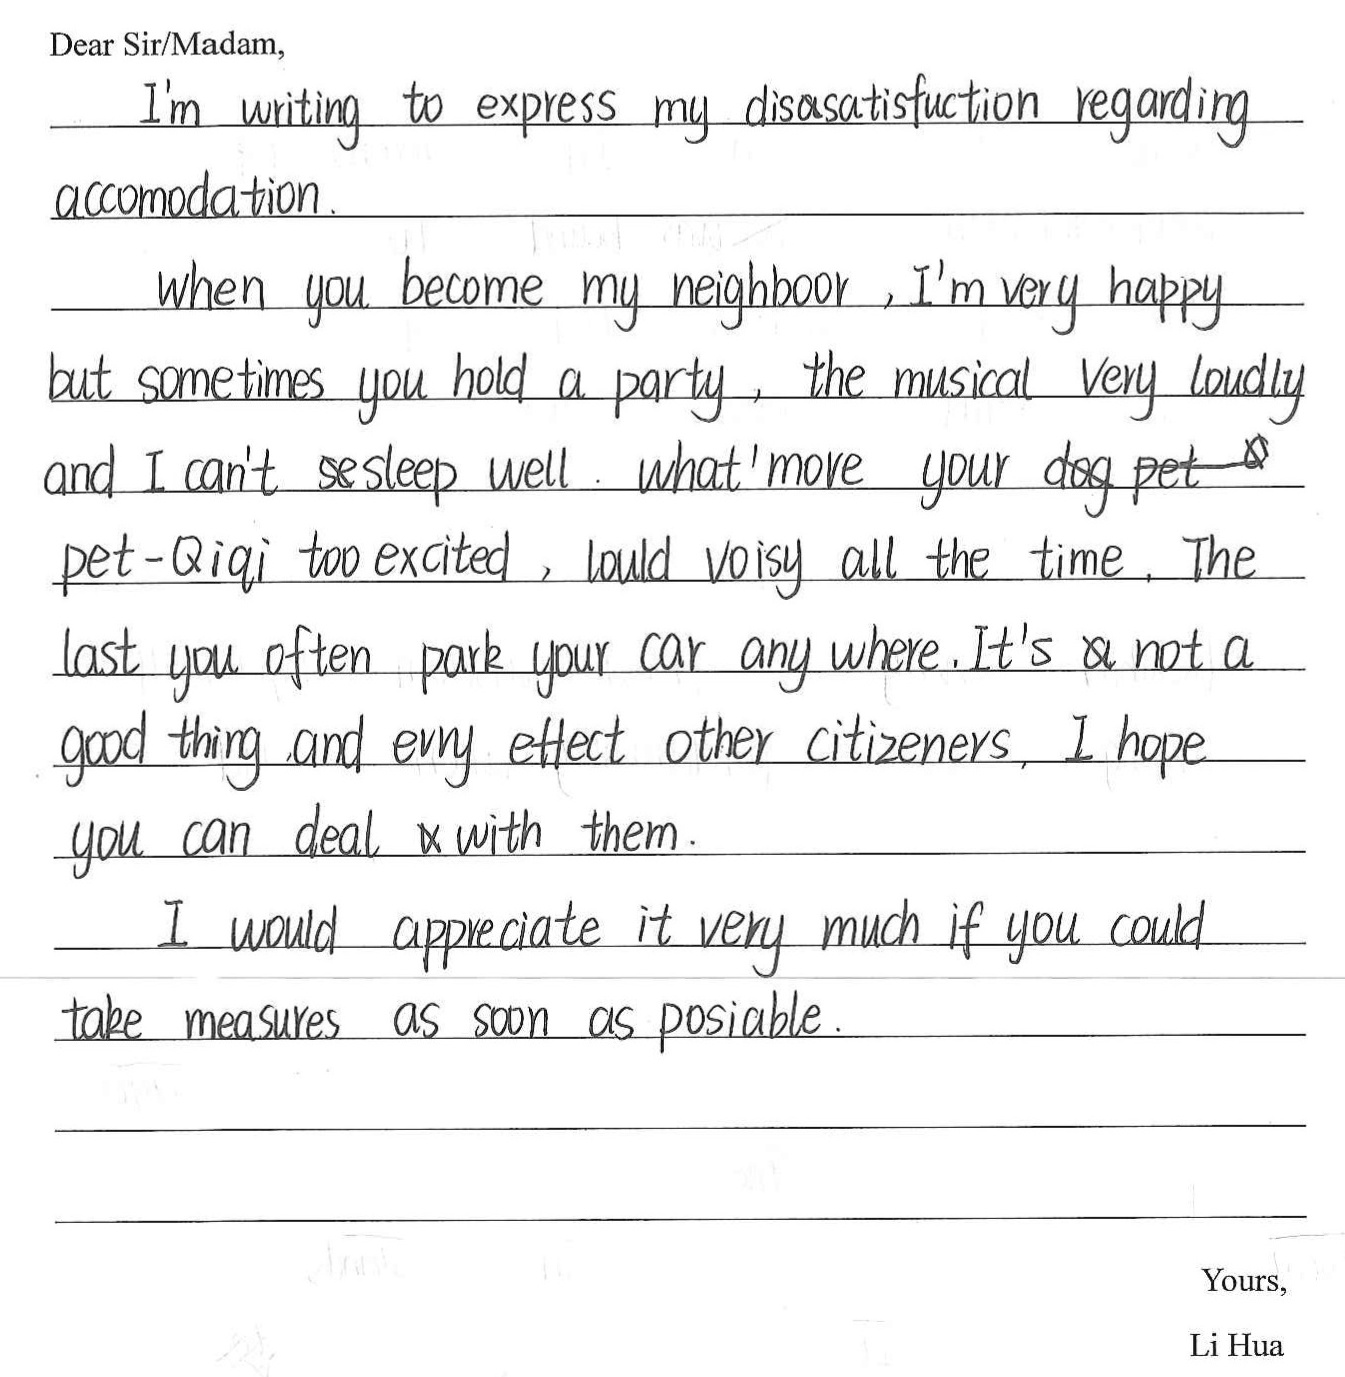 Dear Sir/Madam,
I'm writing to express my disasatisfuction regarding
accomodation.
When you become my neighboor, I'm very happy
but sometimes you hold a party, the musical very loudly
and I can't sesleep well. what'move your dog pet
pet-Qiqi too excited, lould voisy all the time. The
last you often park your car any where. It's not a
good thing and evny effect other citizeners, I hope
you can deal with them.
I would appreciate it very much if you could
take measures as soon as posiable.
Yours,
Li Hua